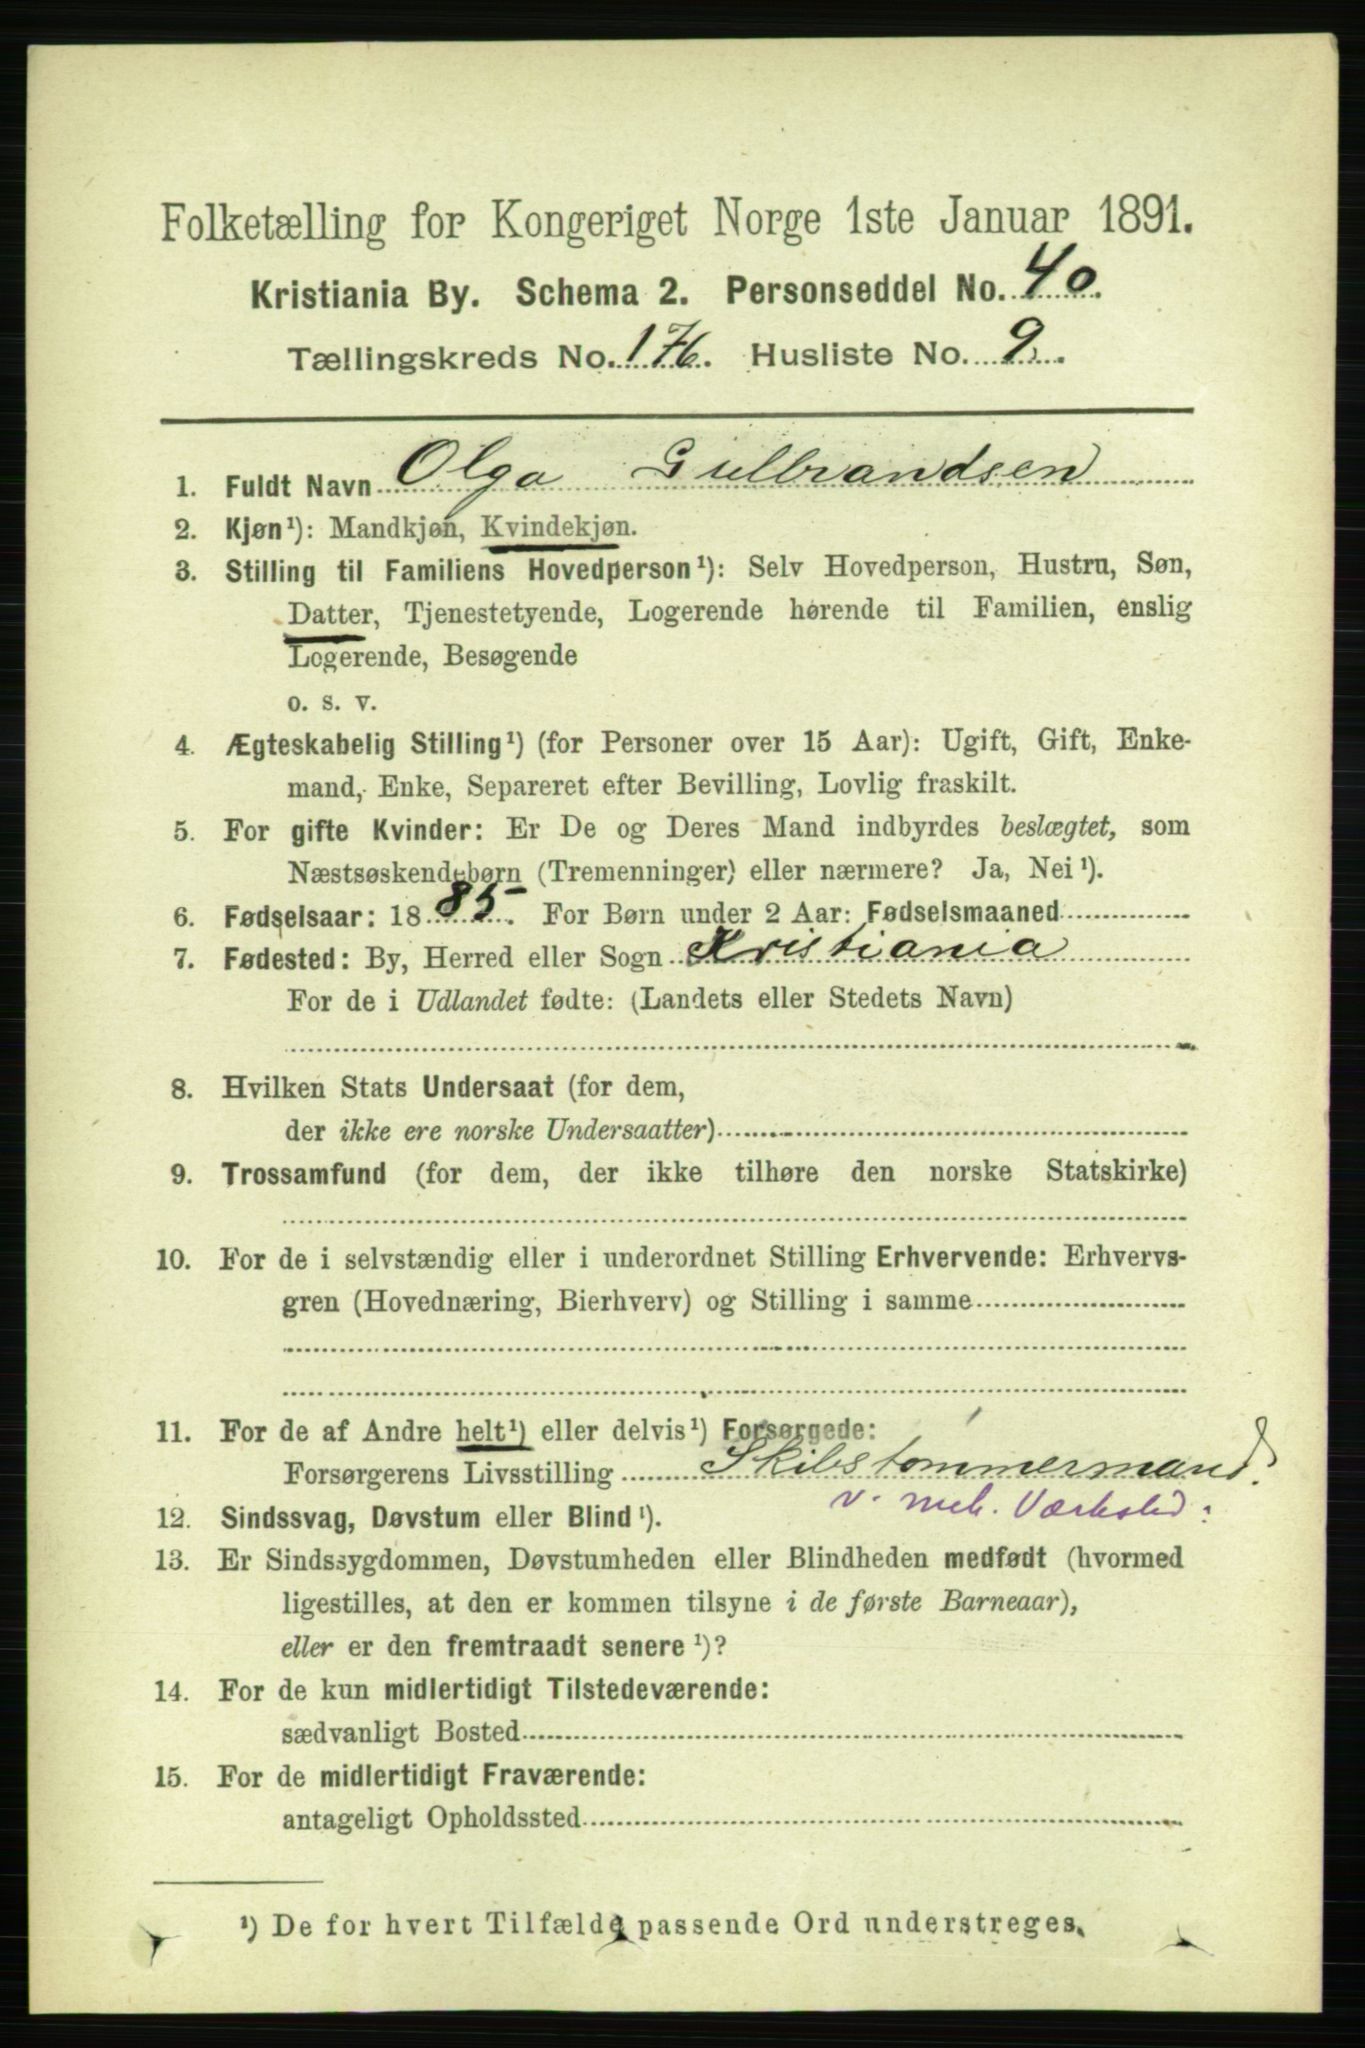 Folketælling for Kongeriget Norge 1ste Januar 1891.
Kristiania By. Schema 2. Personseddel No. 40.
Tællingskreds No. 176. Husliste No. 9.
1. Fuldt Navn Olga Gulbrandsen
2. Kjøn¹): Mandkjøn, Kvindekjøn.
3. Stilling til Familiens Hovedperson¹): Selv Hovedperson, Hustru, Søn,
Datter, Tjenestetyende, Logerende hørende til Familien, enslig
Logerende, Besøgende
o. s. v.
4. Ægteskabelig Stilling¹) (for Personer over 15 Aar): Ugift, Gift, Enke-
mand, Enke, Separeret efter Bevilling, Lovlig fraskilt.
5. For gifte Kvinder: Er De og Deres Mand indbyrdes beslægtet, som
Næstsøskendebørn (Tremenninger) eller nærmere? Ja, Nei¹).
6. Fødselsaar: 1885. For Børn under 2 Aar: Fødselsmaaned
7. Fødested: By, Herred eller Sogn Kristiania
For de i Udlandet fødte: (Landets eller Stedets Navn)
8. Hvilken Stats Undersaat (for dem,
der ikke ere norske Undersaatter)
9. Trossamfund (for dem, der ikke tilhøre den norske Statskirke)
10. For de i selvstændig eller i underordnet Stilling Erhvervende: Erhvervs-
gren (Hovednæring, Bierhverv) og Stilling i samme
11. For de af Andre helt¹) eller delvis¹) Forsørgede:
Forsørgerens Livsstilling Skibstømmermand.
v. mek. Værksted.
12. Sindssvag, Døvstum eller Blind¹).
13. Er Sindssygdommen, Døvstumheden eller Blindheden medfødt (hvormed
ligestilles, at den er kommen tilsyne i de første Barneaar),
eller er den fremtraadt senere¹)?
14. For de kun midlertidigt Tilstedeværende:
sædvanligt Bosted
15. For de midlertidigt Fraværende:
antageligt Opholdssted
¹) De for hvert Tilfælde passende Ord understreges.